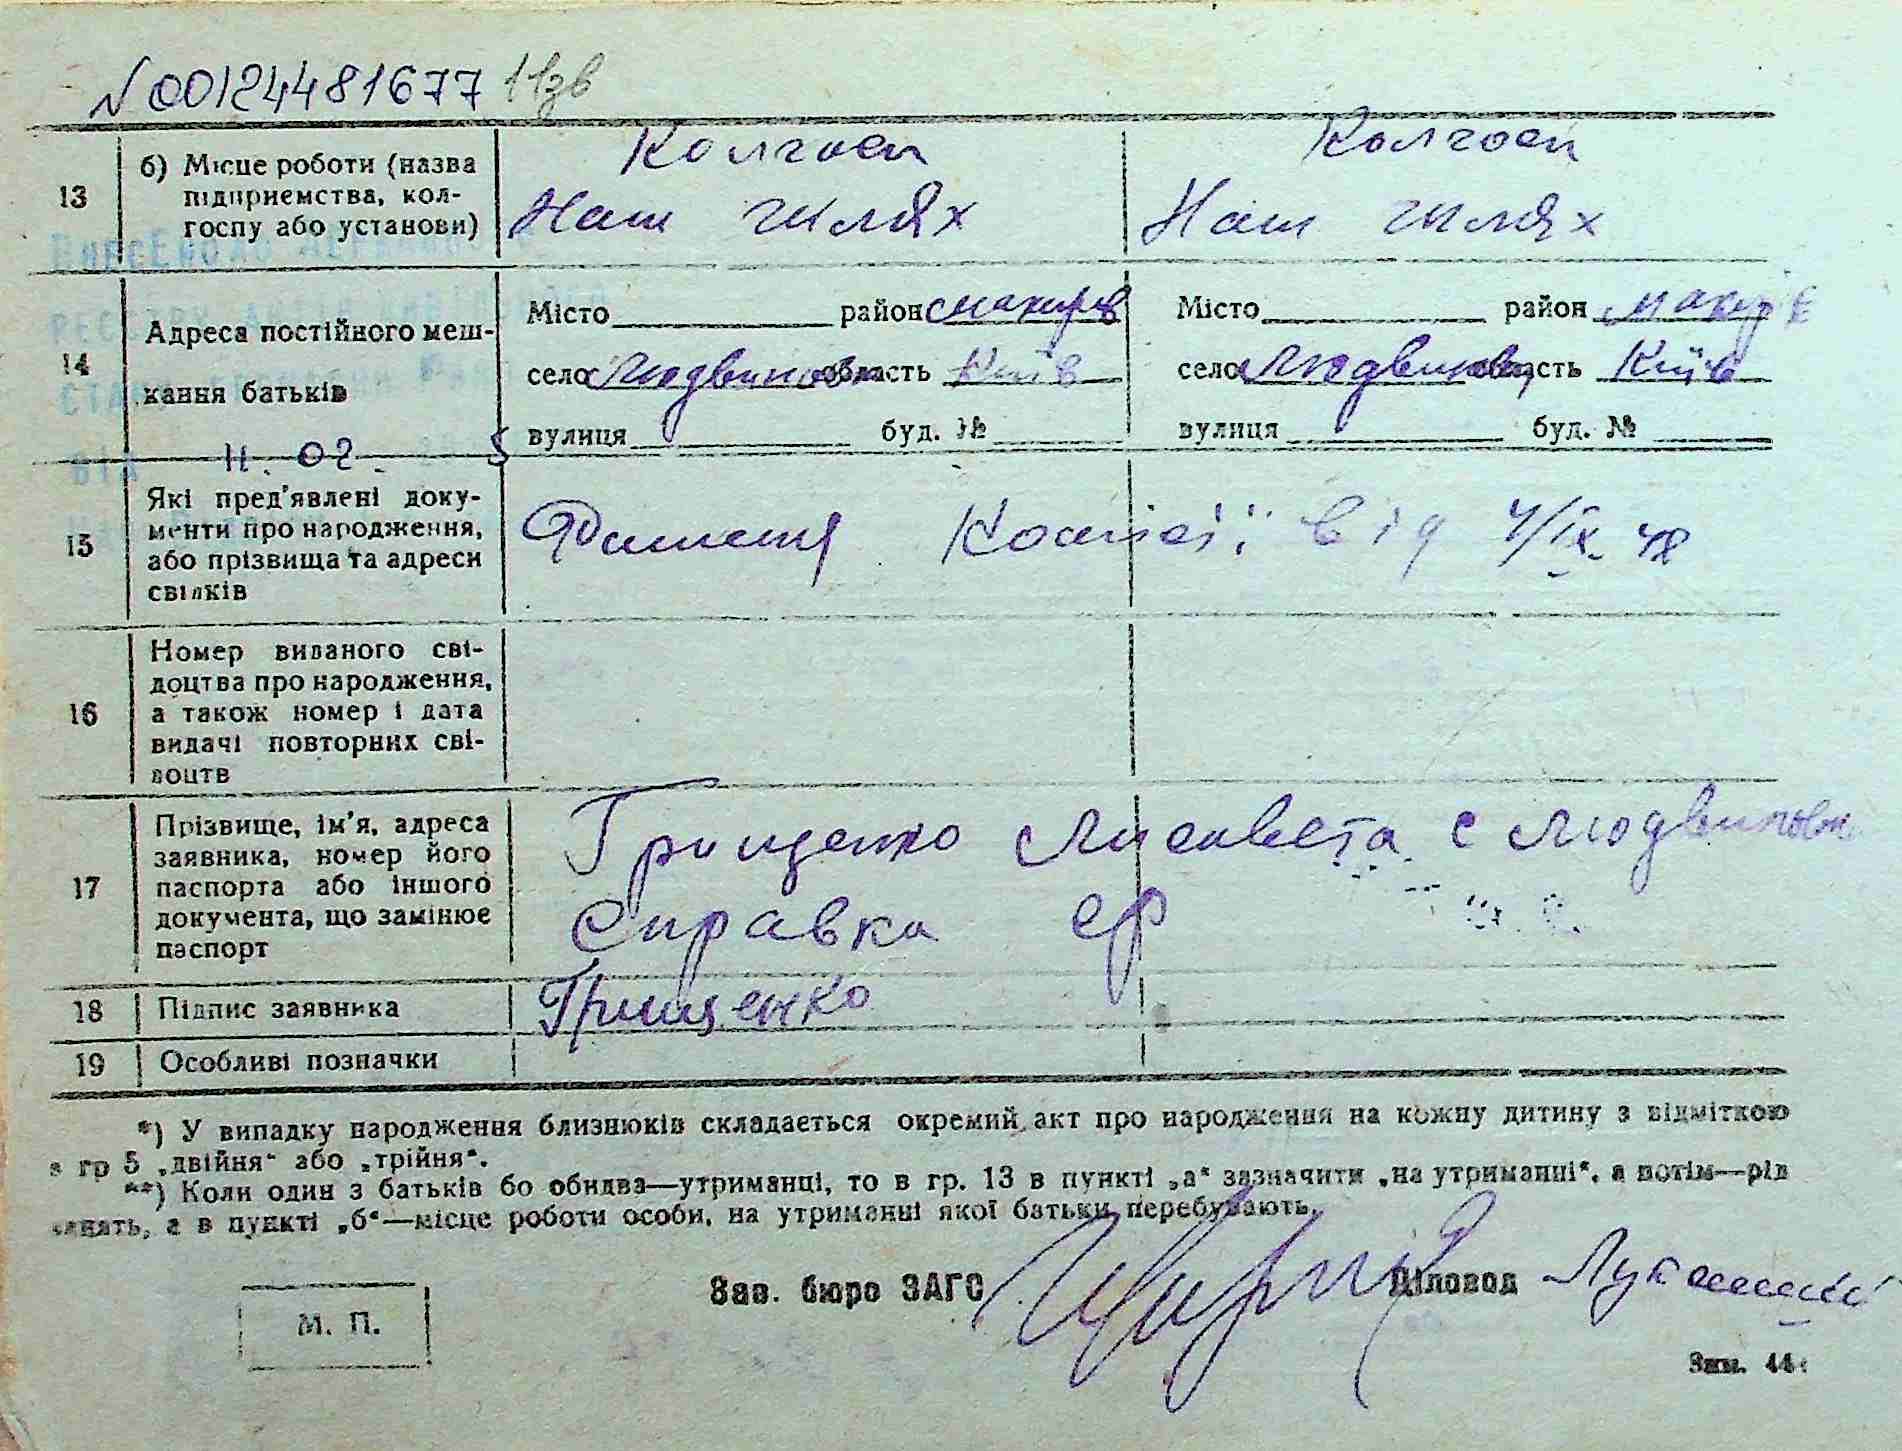 N 00124481677
13 б) Місце роботи (назва підприємства, колгоспу або установи) Колгосп Колгосп
Наш шлях Наш шлях
14 Адреса постійного мешкання батьків
Місто район Макарів Місто район Макарів
село Людвинівка область Київ село область Київ
вулиця буд. № вулиця буд. №
11.02.
15 Які пред'явлені документи про народження, або прізвища та адреси свідків
Комісії від 4/IX-48
16 Номер виданого свідоцтва про народження, а також номер і дата видачі повторних свідоцтв
17 Прізвище, ім'я, адреса заявника, номер його паспорта або іншого документа, що замінює паспорт
Грищенко Лисавета с Людвиновка
Справка
18 Підпис заявника Грищенко
19 Особливі позначки
*) У випадку народження близнюків складається окремий акт про народження на кожну дитину з відміткою
в гр 5 „двійня“ або „трійня“.
**) Коли один з батьків бо обидва—утриманці, то в гр. 13 в пункті „а“ зазначити „на утриманні“, а потім—рід
занять, а в пункті „б“—місце роботи особи, на утриманні якої батьки перебувають.
Зав. бюро ЗАГС Діловод
М. П.
Зам. 44